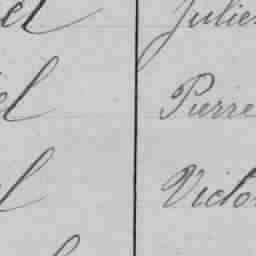 el Julie
el Pierre
l Victo